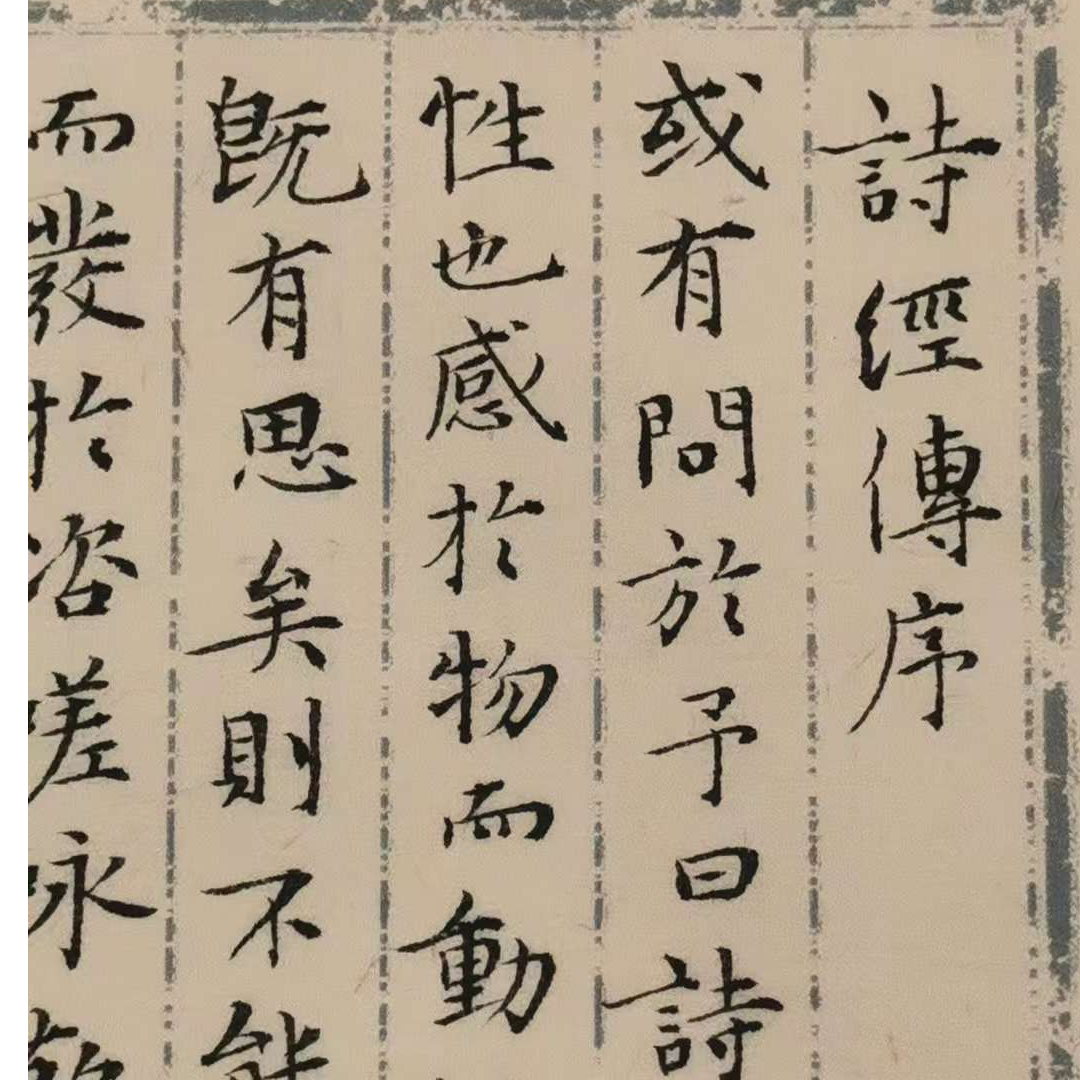 詩經傳序
或有問於予曰詩
性也感於物而動
既有思矣則不能
而發於咨嗟咏